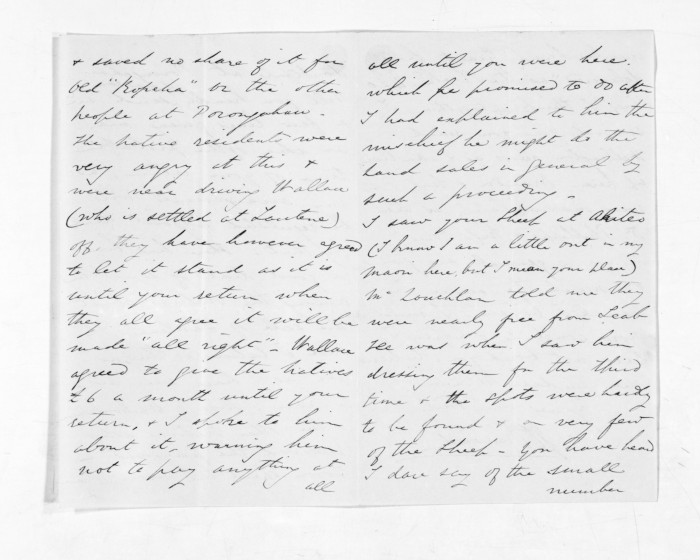 & saved no share of it for
old "Kopeha" or the other
people at Porongahau -
The native residents were
very angry at this &
were near driving Wallace
(who is settled at Tautane)
off, they have however agreed
to let it stand as it is
until your return when
they all agree it will be
made "all right" - Wallace
agreed to give the natives
£6 a month until your
return, & I spoke to him
about it, warning him
not to pay anything at
all
all until you were here.
which he promised to do after
I had explained to him the
mischief he might do the
land sales in general by
such a proceeding -
I saw your Sheep at Akiteo
(I know I am a little out in my
maori here, but I mean your place)
Mc Louchlan told me they
were nearly free from Scab
He was when I saw him
dressing them for the third
time & the spots were hardly
to be found & on very few
of the Sheep - You have heard
I dare say of the small
number